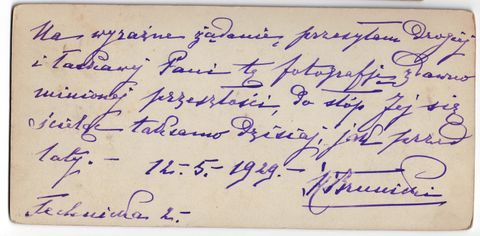 Na wyraźne żądanie, przesyłam Drogiej
i łaskawej Pani tę fotografję z dawno
minionej przeszłości, do stóp Jej się
ścieląc taksamo dzisiaj, jak przed
laty. – 12.-5.- 1929. –
Technicka 2.-